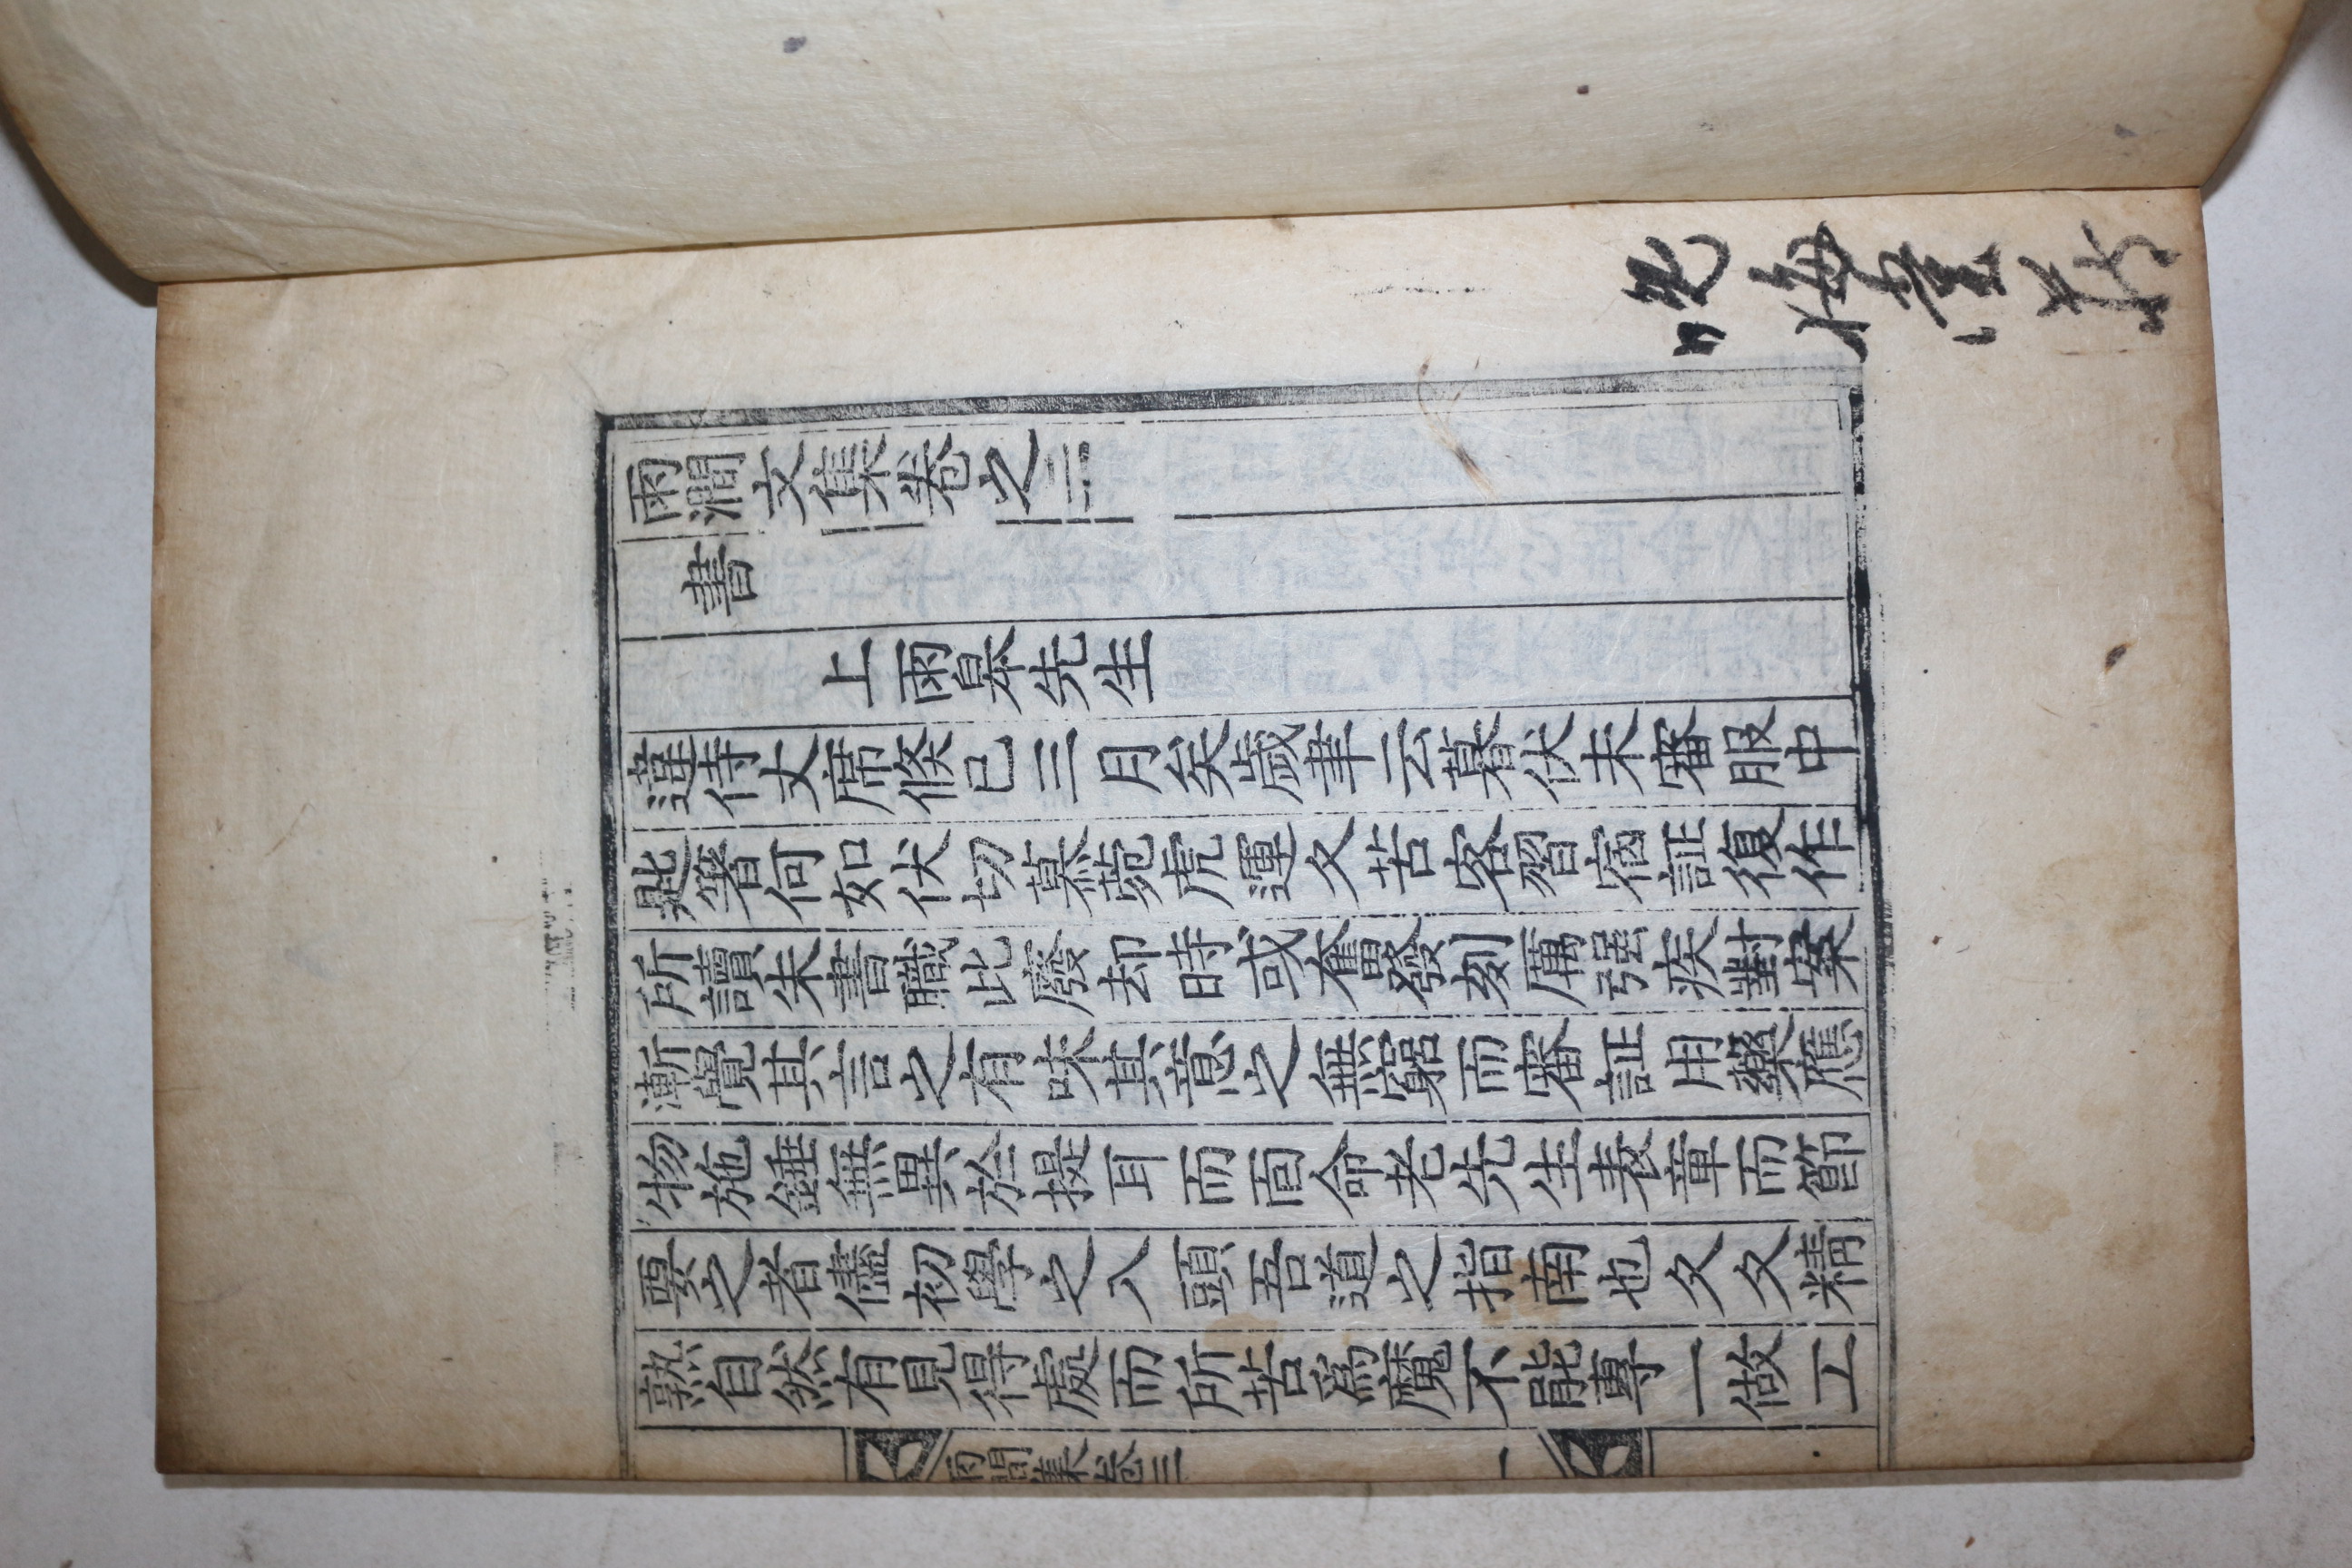 兩澗文集卷之三
書
上兩臯先生
違侍丈席倏已三月矣歲聿云暮伏未審服中
匙箸何如伏切慕菀虎運久苦客習宿証復作
所讀朱書職此廢却時或奮發刻厲强疾對案
漸覺其言之有味其意之無窮而審証用藥應
物施錘無異於提耳而面命老先生表章而節
要之者儘初學之入頭吾道之指南也久久精
熟自然有見得處而所苦爲魔不能專一做工
兩澗集卷三
一